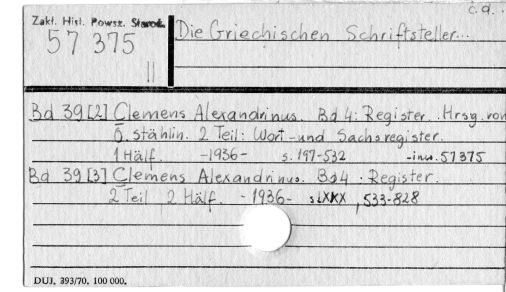 c.d.
Zakł. Hist. Powsz. Staroż.
57 375
II
Die Griechischen Schriftsteller...
Bd 39[2] Clemens Alexandrinus. Bd 4: Register. Hrsg. von
O. Stählin. 2 Teil: Wort- und Sachsregister.
1 Hälf. -1936- s. 197-532 -inw. 57375
Bd 39[3] Clemens Alexandrinus. Bd 4. Register.
2 Teil 2 Hälf. -1936- s. LXXX, 533-828
DUJ. 393/70. 100 000.